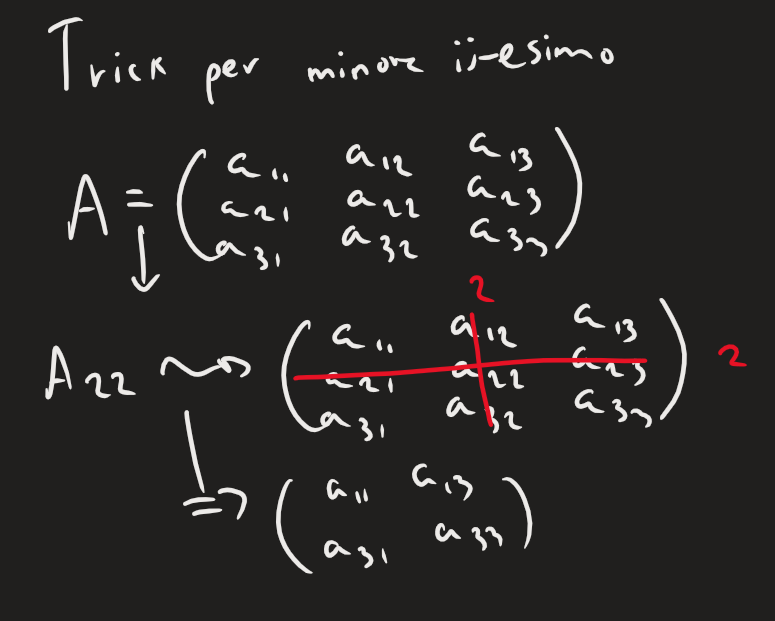 Trick per minore ij-esimo
A = ( a11 a12 a13
a21 a22 a23
a31 a32 a33 )
↓
2
A22 ⤳ ( a11 a12 a13
a21 a22 a23 2
a31 a32 a33 )
⇒ ( a11 a13
a31 a33 )